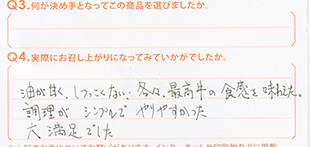 Q3.何が決め手となってこの商品を選びましたか。
Q4.実際にお召し上がりになってみていかがでしたか。
油が甘く、しつこくない。各々、最高牛の食感を味わえた。
調理がシンプルでやりやすかった
大満足でした